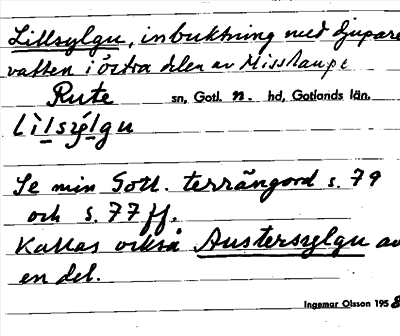 Lillsylgu, inbuktning med djupare
vatten i östra delen av Misslaupe
Rute sn, Gotl. n. hd, Gotlands län.
Lìlsýlgu
Se min Gotl. terrängord s. 79
och s. 77 ff.
Kallas också Austersylgu av
en del.
Ingemar Olsson 1958